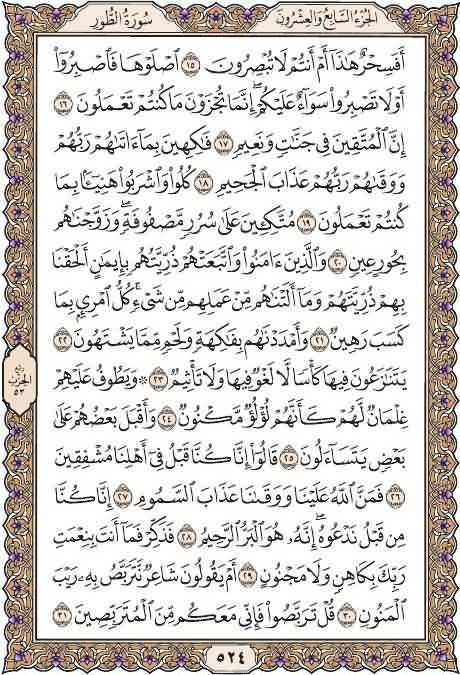 الجزء السابع والعشرون
سورة الطور
أَفَسِحْرٌ هَٰذَا أَمْ أَنتُمْ لَا تُبْصِرُونَ ١٥ ٱصْلَوْهَا فَٱصْبِرُوٓا۟
أَوْ لَا تَصْبِرُوا۟ سَوَآءٌ عَلَيْكُمْ ۖ إِنَّمَا تُجْزَوْنَ مَا كُنتُمْ تَعْمَلُونَ ١٦
إِنَّ ٱلْمُتَّقِينَ فِى جَنَّٰتٍ وَنَعِيمٍ ١٧ فَٰكِهِينَ بِمَآ ءَاتَىٰهُمْ رَبُّهُمْ
وَوَقَىٰهُمْ رَبُّهُمْ عَذَابَ ٱلْجَحِيمِ ١٨ كُلُوا۟ وَٱشْرَبُوا۟ هَنِيٓـًٔۢا بِمَا
كُنتُمْ تَعْمَلُونَ ١٩ مُتَّكِـِٔينَ عَلَىٰ سُرُرٍ مَّصْفُوفَةٍ ۖ وَزَوَّجْنَٰهُم
بِحُورٍ عِينٍ ٢٠ وَٱلَّذِينَ ءَامَنُوا۟ وَٱتَّبَعَتْهُمْ ذُرِّيَّتُهُم بِإِيمَٰنٍ أَلْحَقْنَا
بِهِمْ ذُرِّيَّتَهُمْ وَمَآ أَلَتْنَٰهُم مِّنْ عَمَلِهِم مِّن شَىْءٍ ۚ كُلُّ ٱمْرِئٍۭ بِمَا
كَسَبَ رَهِينٌ ٢١ وَأَمْدَدْنَٰهُم بِفَٰكِهَةٍ وَلَحْمٍ مِّمَّا يَشْتَهُونَ ٢٢
يَتَنَٰزَعُونَ فِيهَا كَأْسًا لَّا لَغْوٌ فِيهَا وَلَا تَأْثِيمٌ ٢٣ ۞ وَيَطُوفُ عَلَيْهِمْ
غِلْمَانٌ لَّهُمْ كَأَنَّهُمْ لُؤْلُؤٌ مَّكْنُونٌ ٢٤ وَأَقْبَلَ بَعْضُهُمْ عَلَىٰ
بَعْضٍ يَتَسَآءَلُونَ ٢٥ قَالُوٓا۟ إِنَّا كُنَّا قَبْلُ فِىٓ أَهْلِنَا مُشْفِقِينَ
٢٦ فَمَنَّ ٱللَّهُ عَلَيْنَا وَوَقَىٰنَا عَذَابَ ٱلسَّمُومِ ٢٧ إِنَّا كُنَّا
مِن قَبْلُ نَدْعُوهُ ۖ إِنَّهُۥ هُوَ ٱلْبَرُّ ٱلرَّحِيمُ ٢٨ فَذَكِّرْ فَمَآ أَنتَ بِنِعْمَتِ
رَبِّكَ بِكَاهِنٍ وَلَا مَجْنُونٍ ٢٩ أَمْ يَقُولُونَ شَاعِرٌ نَّتَرَبَّصُ بِهِۦ رَيْبَ
ٱلْمَنُونِ ٣٠ قُلْ تَرَبَّصُوا۟ فَإِنِّى مَعَكُم مِّنَ ٱلْمُتَرَبِّصِينَ ٣١
ربع
الحزب
٥٣
٥٢٤